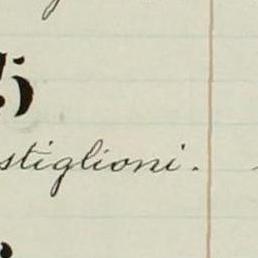 5
stiglioni.